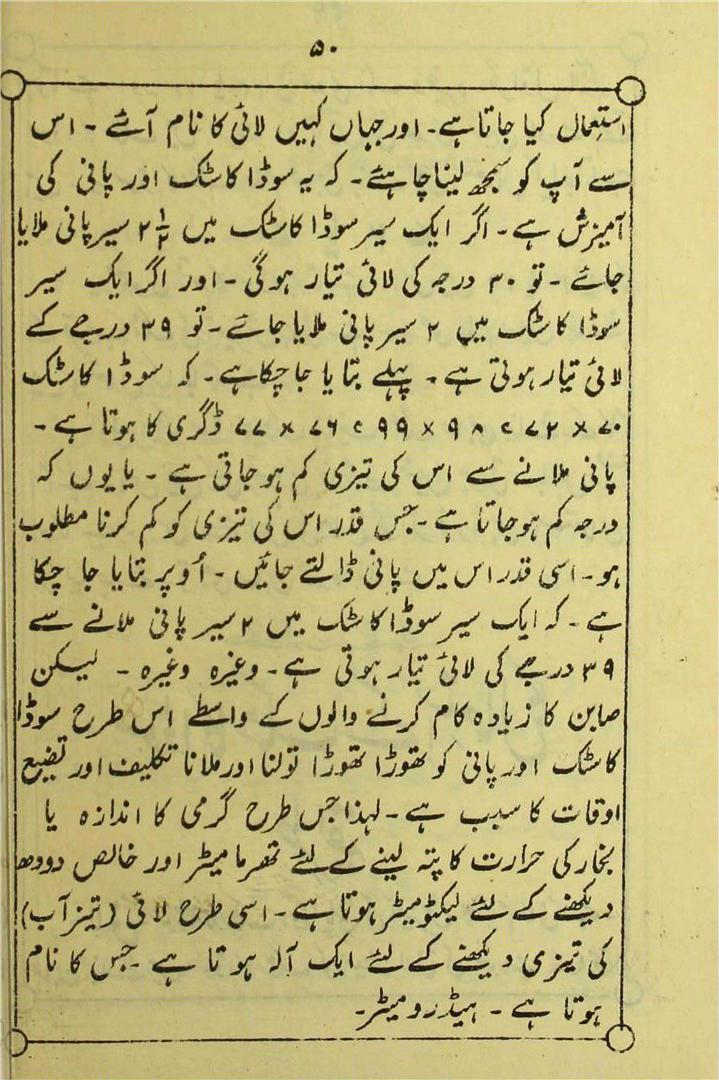 ۵۰
استعمال کیا جاتا ہے۔ اور جہاں کہیں لائی کا نام آئے ۔ اس
سے آپ کو سمجھ لینا چاہئے ۔ کہ یہ سوڈا کاسٹک اور پانی کی
آمیزش ہے ۔ اگر ایک سیر سوڈا کاسٹک میں ۲½ سیر پانی ملایا
جائے ۔ تو ۳۰ درجہ کی لائی تیار ہوگی ۔ اور اگر ایک سیر
سوڈا کاسٹک میں ۲ سیر پانی ملایا جائے ۔ تو ۳۹ درجے کے
لائی تیار ہوتی ہے ۔ پہلے بتایا جا چکا ہے ۔ کہ سوڈا کاسٹک
۷۰ × ۷۲ ، ۹۸ × ۹۹ ، ۷۶ × ۷۷ ڈگری کا ہوتا ہے ۔
پانی ملانے سے اس کی تیزی کم ہو جاتی ہے ۔ یا یوں کہ
درجہ کم ہو جاتا ہے ۔ جس قدر اس کی تیزی کو کم کرنا مطلوب
ہو ۔ اسی قدر اس میں پانی ڈالتے جائیں ۔ اُوپر بتایا جا چکا
ہے ۔ کہ ایک سیر سوڈا کاسٹک میں ۲ سیر پانی ملانے سے
۳۹ درجے کی لائی تیار ہوتی ہے ۔ وغیرہ وغیرہ ۔ لیکن
صابن کا زیادہ کام کرنے والوں کے واسطے اس طرح سوڈا
کاسٹک اور پانی کو تھوڑا تھوڑا تولنا اور ملانا تکلیف اور تضیع
اوقات کا سبب ہے ۔ لہذا جس طرح گرمی کا اندازہ یا
بخار کی حرارت کا پتہ لینے کے لئے تھرمامیٹر اور خالص دودھ
دیکھنے کے لئے لیکٹومیٹر ہوتا ہے ۔ اسی طرح لائی (تیز آب)
کی تیزی دیکھنے کے لئے ایک آلہ ہوتا ہے ۔ جس کا نام
ہوتا ہے ۔ ہیڈرومیٹر ۔